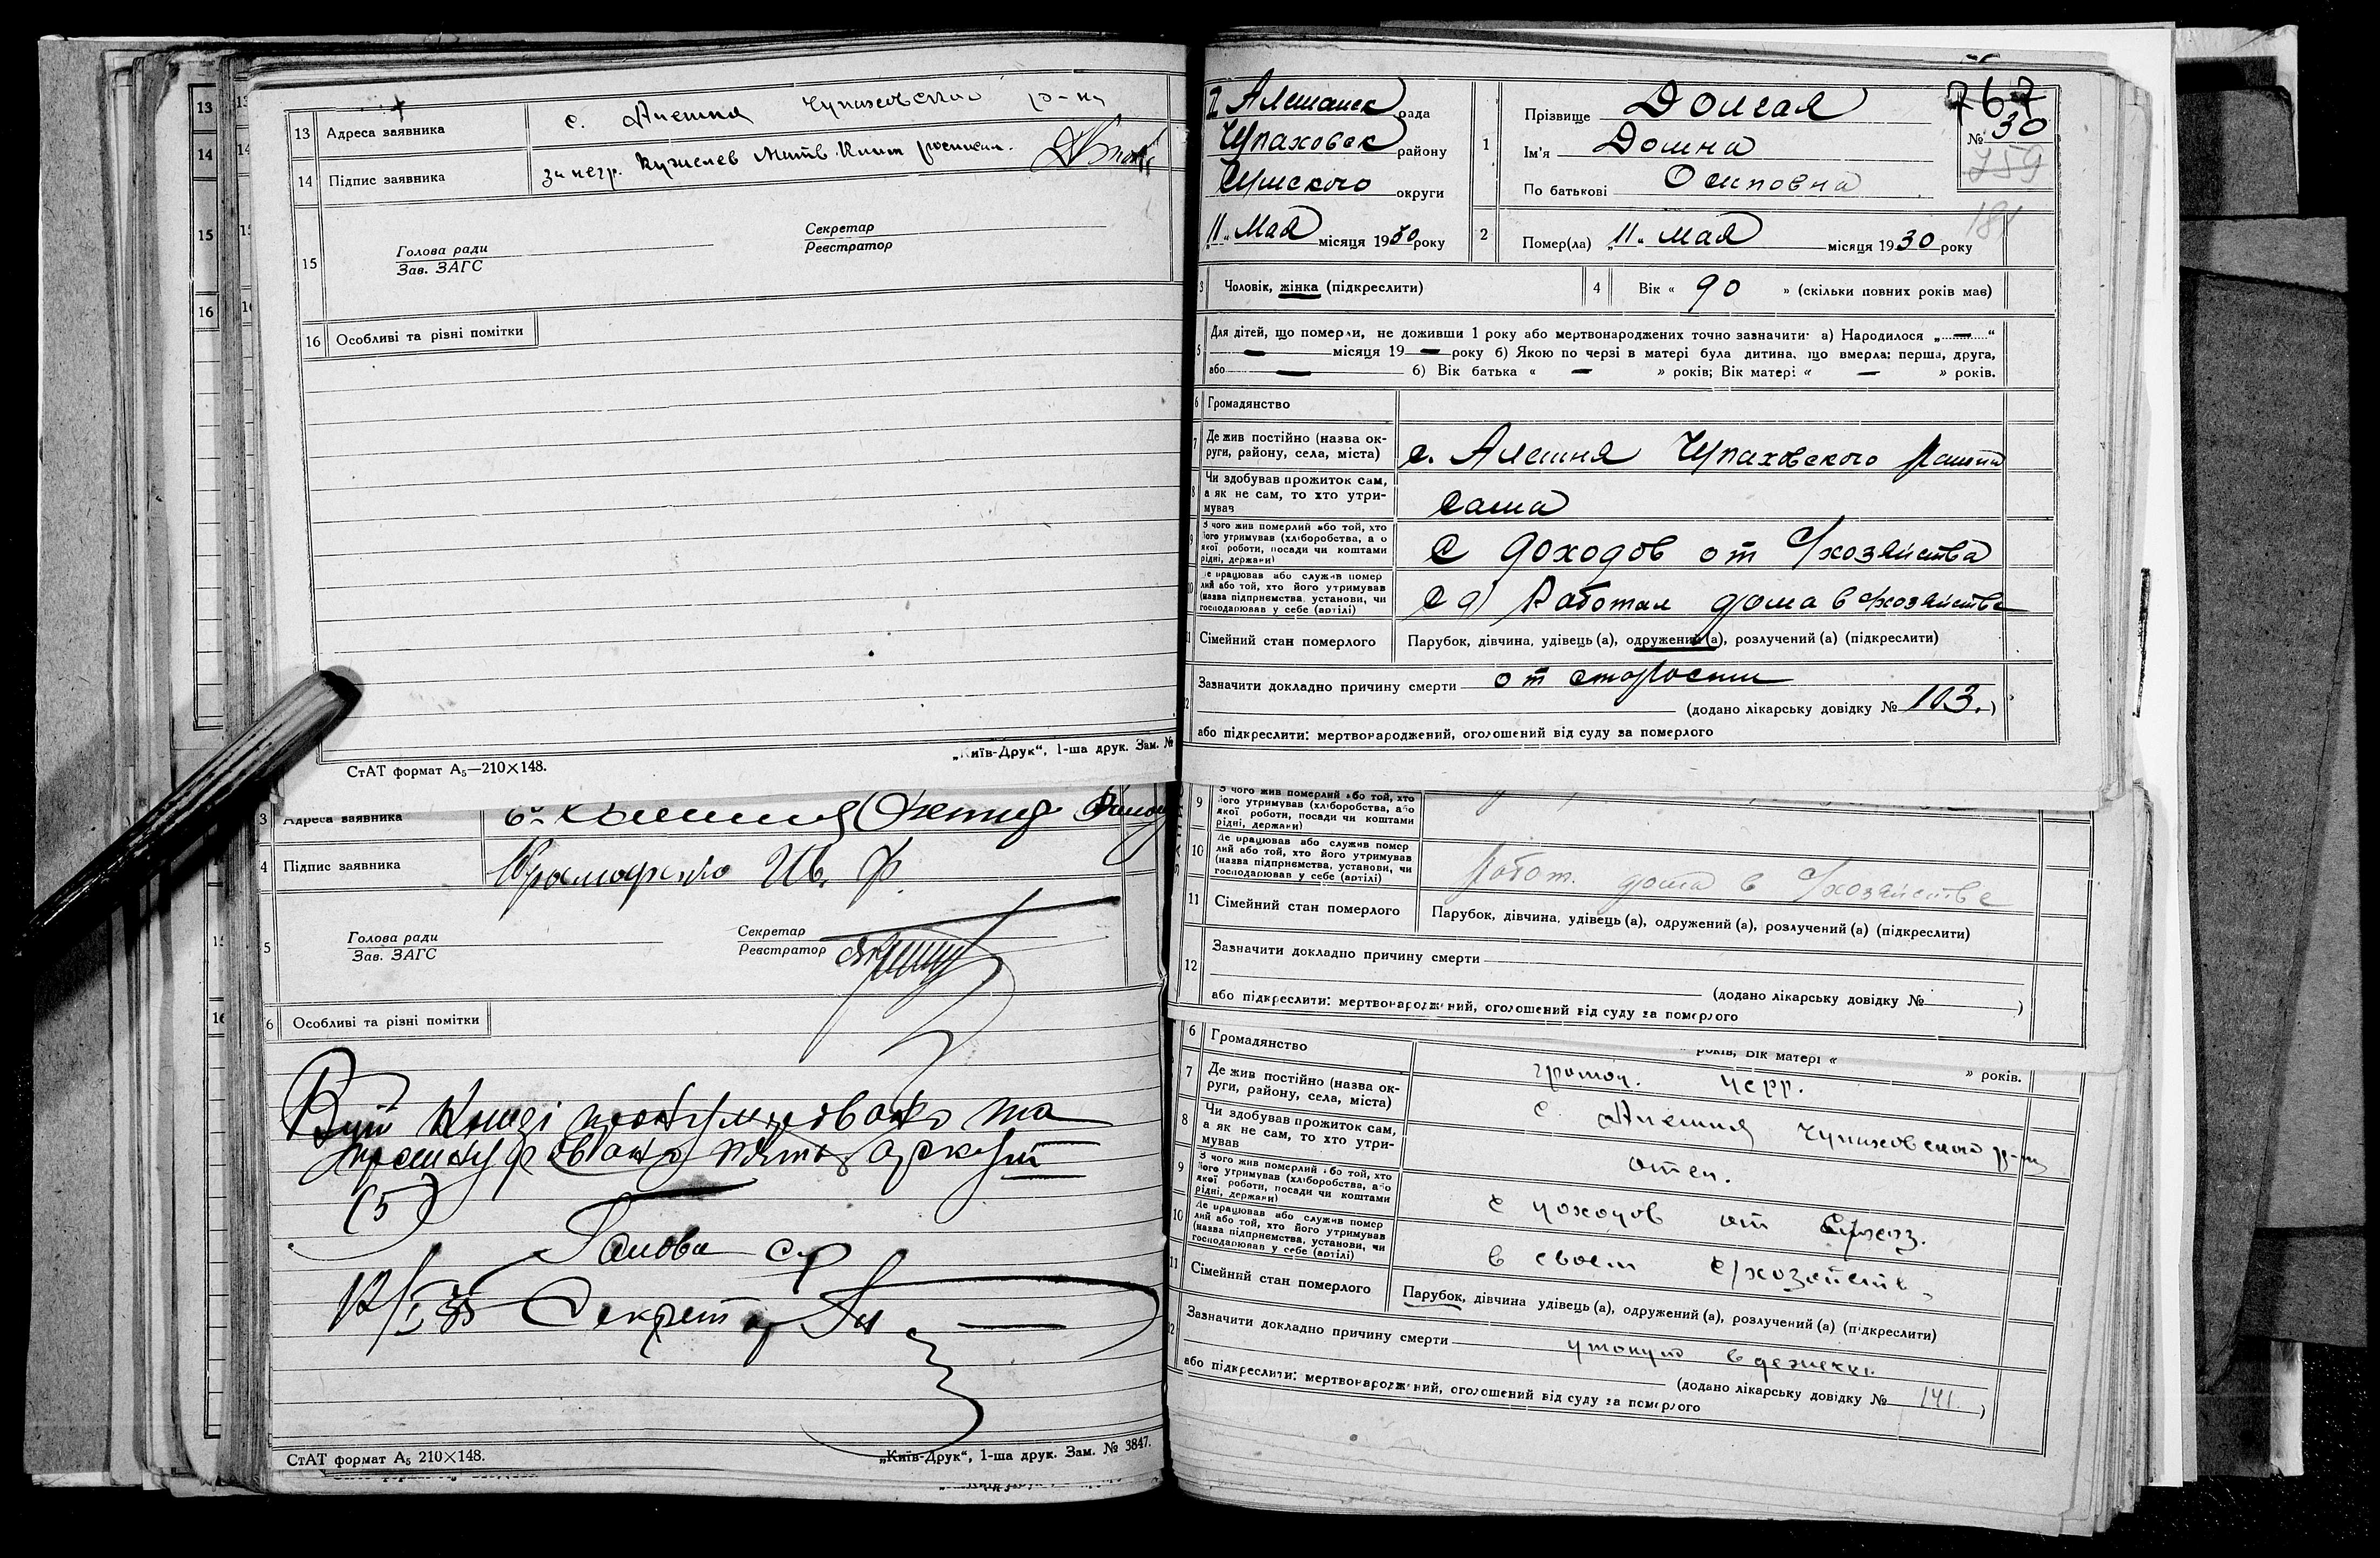 13
14
15
16
13 Адреса заявника с. Алешня Чупаховского р-на
14 Підпис заявника за негр.
15 Голова ради
Зав. ЗАГС
Секретар
Реєстратор
16 Особливі та різні помітки
СтАТ формат А₅—210×148.
„Київ-Друк“, 1-ша друк. Зам. №
3 Адреса заявника
4 Підпис заявника Ив. Ф.
5 Голова ради
Зав. ЗАГС
Секретар
Реєстратор
6 Особливі та різні помітки
В цій книзі пронумеровано та
прошнуровано аркушів
(5)
Голова с/р
Секретар
СтАТ формат А₅ 210×148.
„Київ-Друк“, 1-ша друк. Зам. № 3847.
Алешанск рада
Чупаховск району
Сумского округи
„11„ Мая місяця 1930 року
1 Прізвище Долгая
Ім'я Домна
По батькові Осиповна
767
№ 30
759
181
2 Помер(ла) „11„ мая місяця 1930 року
3 Чоловік, жінка (підкреслити)
4 Вік « 90 » (скільки повних років має)
5 Для дітей, що померли, не доживши 1 року або мертвонароджених точно зазначити: а) Народилося „ — “
— місяця 19 — року б) Якою по черзі в матері була дитина, що вмерла: перша, друга,
або — б) Вік батька « — » років; Вік матері « — » років.
6 Громадянство
7 Де жив постійно (назва округи, району, села, міста) с. Алешня Чупаховского района
8 Чи здобував прожиток сам, а як не сам, то хто утримував сама
9 З чого жив померлий або той, хто його утримував (хліборобства, або якої роботи, посади чи коштами рідні, держави) С доходов от с/хозяйства
10 Де працював або служив померлий або той, хто його утримував (назва підприємства, установи, чи господарював у себе (артілі) Работал дома в с/хозяйстве
11 Сімейний стан померлого Парубок, дівчина, удівець(а), одружений(а), розлучений(а) (підкреслити)
12 Зазначити докладно причину смерти от старости
(додано лікарську довідку № 103.)
або підкреслити: мертвонароджений, оголошений від суду за померлого
9 З чого жив померлий або той, хто його утримував (хліборобства, або якої роботи, посади чи коштами рідні, держави)
10 Де працював або служив померлий або той, хто його утримував (назва підприємства, установи, чи господарював у себе (артілі) Работ. дома в с/хозяйстве
11 Сімейний стан померлого Парубок, дівчина, удівець(а), одружений(а), розлучений(а) (підкреслити)
12 Зазначити докладно причину смерти
(додано лікарську довідку № )
або підкреслити: мертвонароджений, оголошений від суду за померлого
років; Вік матері « » років.
6 Громадянство
7 Де жив постійно (назва округи, району, села, міста) с. Алешня Чупаховского р-на
8 Чи здобував прожиток сам, а як не сам, то хто утримував отец.
9 З чого жив померлий або той, хто його утримував (хліборобства, або якої роботи, посади чи коштами рідні, держави) с доходов от с/хоз.
10 Де працював або служив померлий або той, хто його утримував (назва підприємства, установи, чи господарював у себе (артілі) в своем с/хозяйств.
11 Сімейний стан померлого Парубок, дівчина удівець(а), одружений(а), розлучений(а) (підкреслити)
Зазначити докладно причину смерти утонул в
(додано лікарську довідку № 141.)
або підкреслити: мертвонароджений, оголошений від суду за померлого